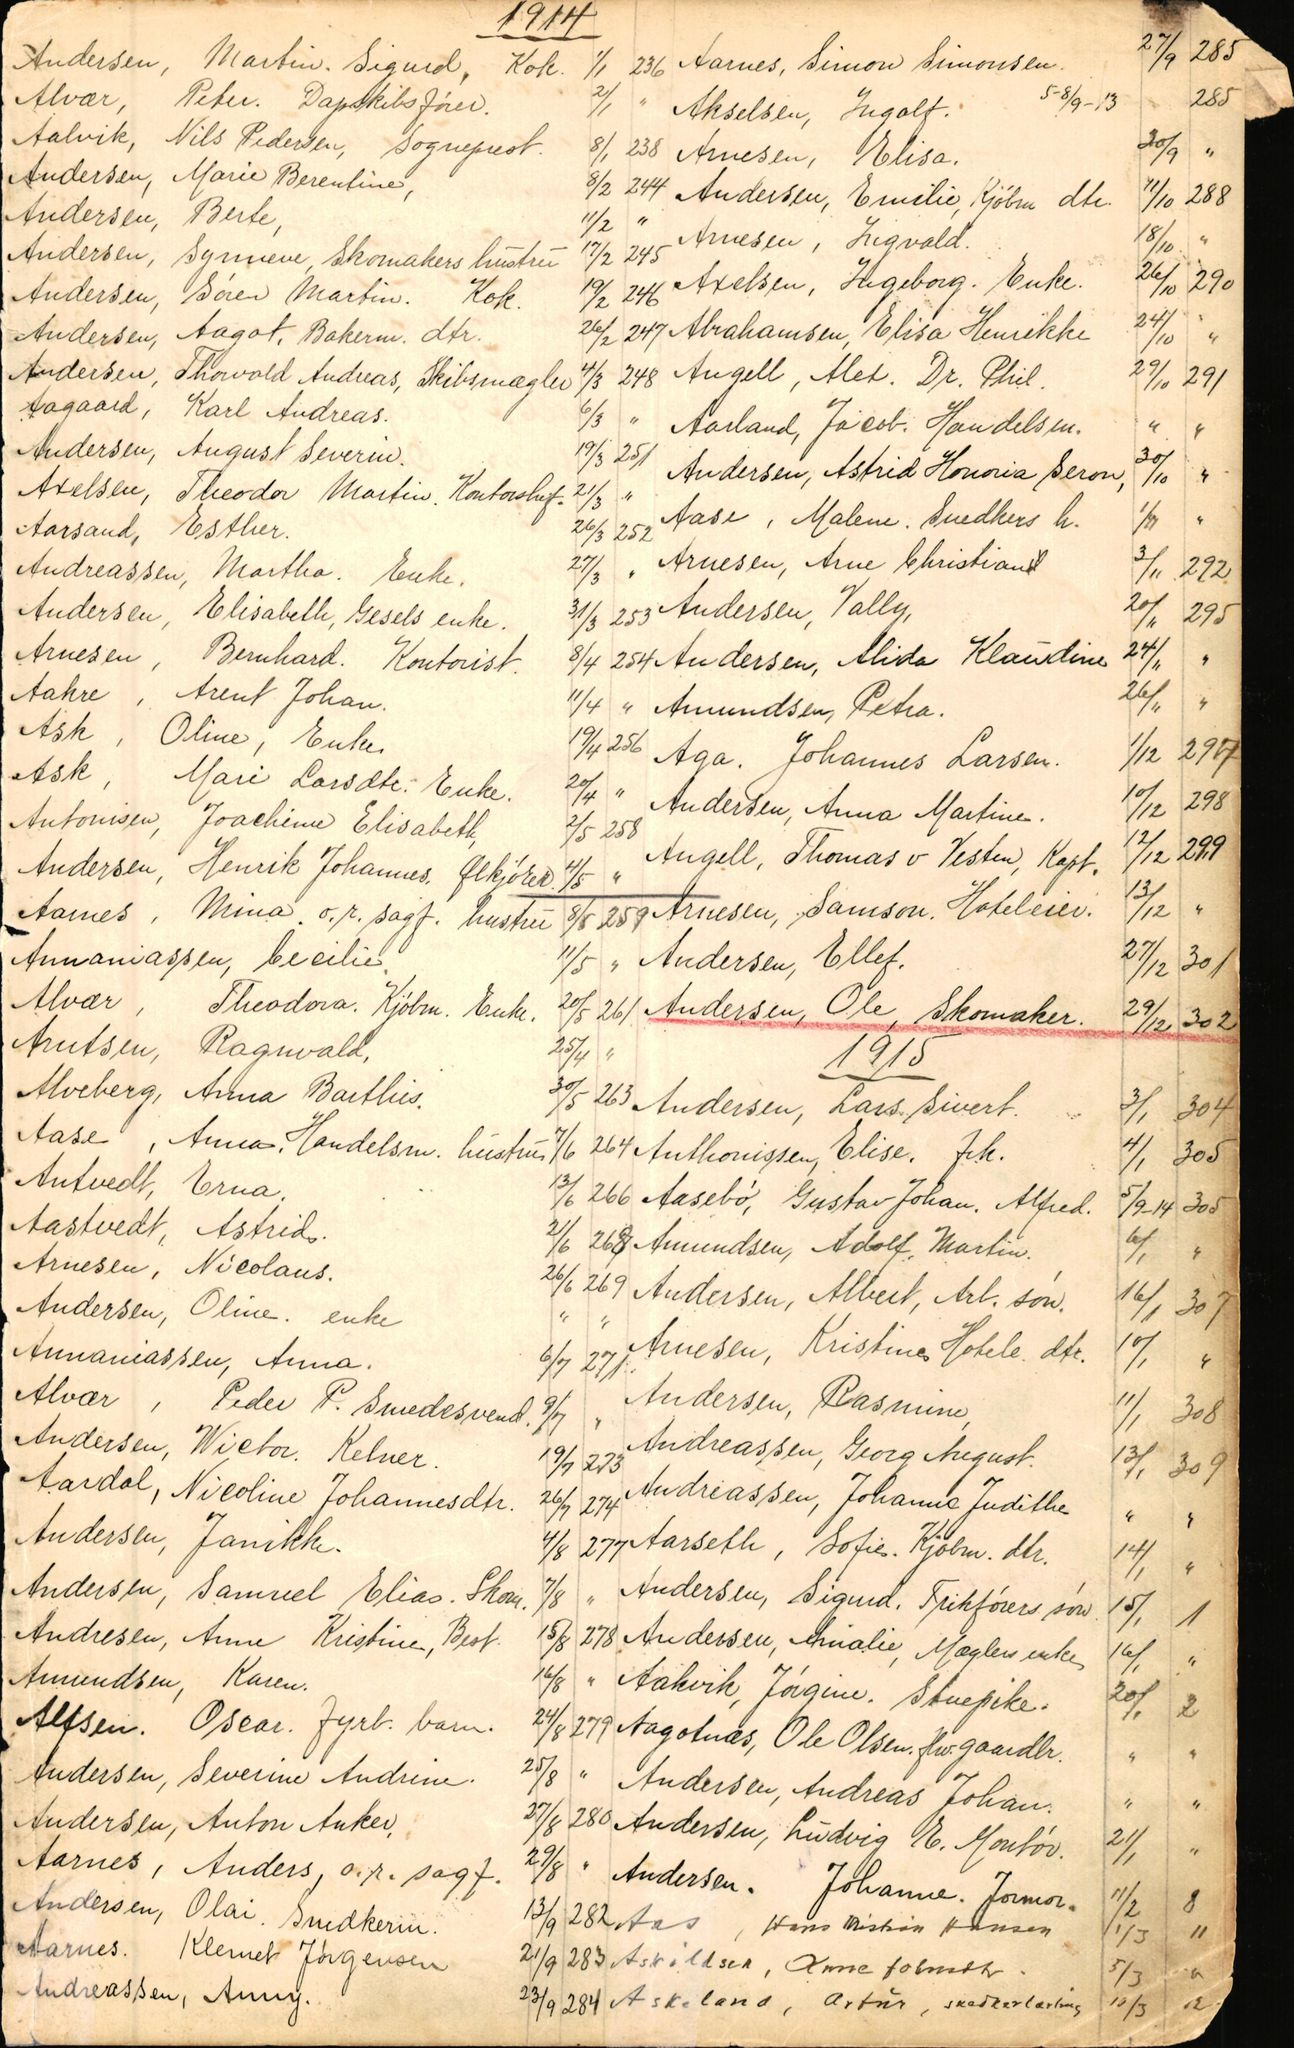 1914
Andersen, Martin Sigurd, Kok. 1/1 236
Alvær, Peter. Dapskibsfører. 2/1 "
Aalvik, Nils Pedersen, Sogneprest. 8/1 238
Andersen, Marie Berentine, 8/2 244
Andersen, Berte, 11/2 "
Andersen, Synneve, Skomakers hustru 17/2 245
Andersen, Sören Martin. Kok. 19/2 246
Andersen, Aagot, Bakerm. dtr. 26/2 247
Andersen, Thorvald Andreas, Skibsmægler 4/3 248
Aagaard, Karl Andreas. 6/3 "
Andersen, August Severin. 19/3 251
Axelsen, Theodor Martin. Kontorchef. 21/3 "
Aarsand, Esther. 26/3 252
Andreassen, Martha. Enke. 27/3 "
Andersen, Elisabeth, Gesels enke. 31/3 253
Arnesen, Bernhard. Kontorist. 8/4 254
Aakre, Arent Johan. 11/4 "
Ask, Oline, Enke. 19/4 256
Ask, Mari Larsdtr. Enke. 20/4 "
Antonisen, Joachime Elisabeth, 2/5 258
Andersen, Henrik Johannes, Ølkjörer. 4/5 "
Aarnes, Mina o.r. sagf. hustru 8/5 259
Annaniassen, Cecilie 11/5 "
Alvær, Theodora. Kjöbm. Enke. 20/5 261
Arntsen, Ragnvald, 25/4 "
Alveberg, Anna Barthies. 30/5 263
Aase, Anna, Handelsm. hustru 7/6 264
Antvedt, Erna. 13/6 266
Aastvedt, Astrid. 21/6 268
Arnesen, Nicolaus. 26/6 269
Andersen, Oline. enke " "
Annaniassen, Anna. 6/7 271
Alvær, Peder P. Smedesvend. 9/7 "
Andersen, Wictor. Kelner. 19/7 273
Aardal, Nicoline Johannesdtr. 26/7 274
Andersen, Janikke. 4/8 277
Andersen, Samuel Elias. Skom. 7/8 "
Andresen, Anne Kristine, Best. 15/8 278
Amundsen, Karen. 16/8 "
Alfsen. Oscar. fyrb. barn. 24/8 279
Andersen, Severine Andrine. 25/8 "
Andersen, Anton Anker, 27/8 280
Aarnes, Anders, o.r. sagf. 29/8 "
Andersen, Olai. Snedkerm. 13/9 282
Aarnes. Klemet Jørgensen 21/9 283
Andreassen, Anny. 23/9 284
Aarnes, Simon Simonsen. 27/9 285
Akselsen, Ingolf. 5-8/9-13 285
Arnesen, Elisa. 30/9 "
Andersen, Emilie, Kjöbm dtr. 11/10 288
Arnesen, Ingvald. 18/10 "
Axelsen, Ingeborg. Enke. 26/10 290
Abrahamsen, Elisa Henrikke 24/10 "
Angell, Alex. Dr. Phil. 29/10 291
Aarland, Jacob. Handelsm. " "
Andersen, Astrid Honoria Seron, 30/10 "
Aase, Malene. Snedkers h. 1/11 "
Arnesen, Arne Christian 3/11 292
Andersen, Vally, 20/11 295
Andersen, Alida Klaudine 24/11 "
Amundsen, Petra. 26/11 "
Aga. Johannes Larsen. 1/12 297
Andersen, Anna Martine. 10/12 298
Angell, Thomas v Westen, Kapt. 12/12 299
Arnesen, Samson. Hoteleier. 13/12 "
Andersen, Ellef. 27/12 301
Andersen, Ole, Skomaker. 29/12 302
1915
Andersen, Lars Sivert. 3/1 304
Anthonissen, Elise. frk. 4/1 305
Aasebö, Gustav Johan. Alfred. 5/9-14 305
Amundsen, Adolf, Martin. 6/1 "
Andersen, Albert, Arb. sön. 16/1 307
Arnesen, Kristine Hotele. dtr. 10/1 "
Andersen, Rasmine, 11/1 308
Andreassen, Georg August. 13/1 309
Andreassen, Johanne Judithe " "
Aarseth, Sofie. Kjöbm. dtr. 14/1 "
Andersen, Sigurd. Trikförers sön 15/1 1
Andersen, Amalie, Mæglers enke 16/1 "
Aakvik, Jörgine. Stuepike. 20/1 2
Aagotnæs, Ole Olsen. fhv. gaardbr. " "
Andersen, Andreas Johan. " "
Andersen, Ludvig E. Montör. 21/1 "
Andersen. Johanne. Jormor. 11/2 8
Aas, Hans Kristian Hansen 1/3 11
Askildsen, Anne 5/3 "
Askeland, Artur, snedkerlærling 10/3 12